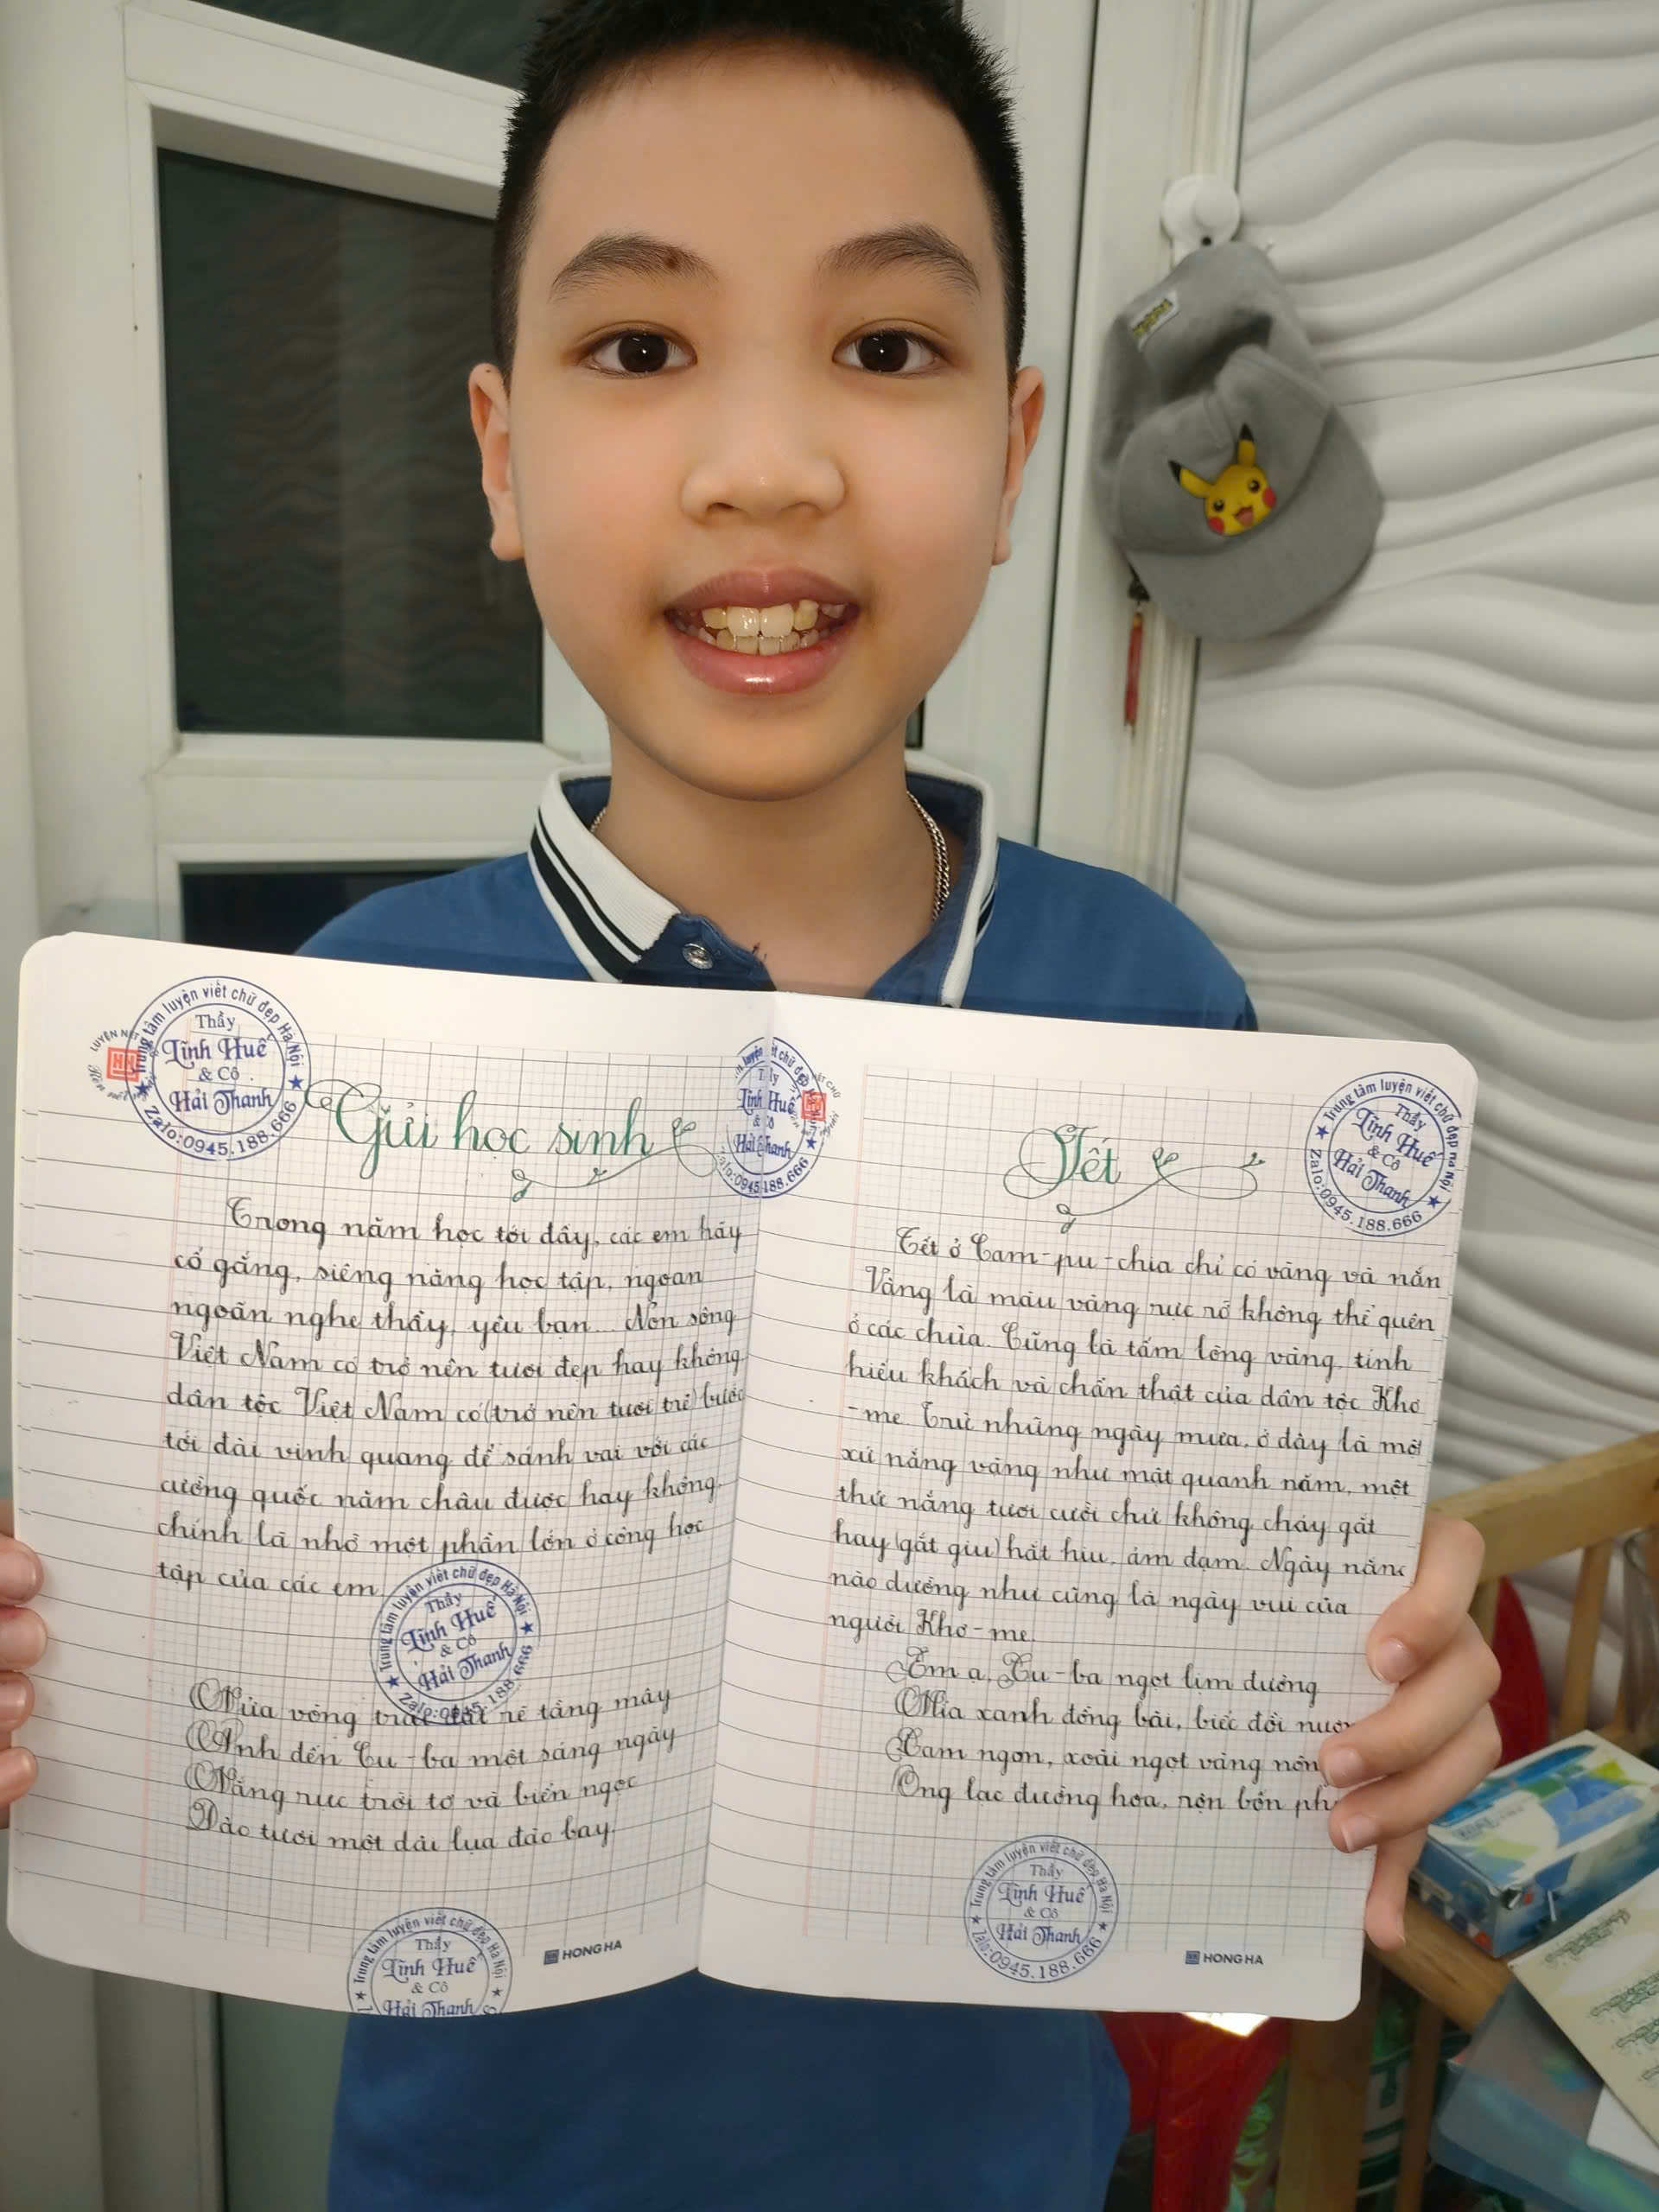 Trung tâm luyện viết chữ đẹp Hà Nội
Thầy
Lĩnh Huế
& Cô
Hải Thanh
Zalo:0945.188.666
LUYỆN NÉT
Gửi học sinh
Trong năm học tới đây, các em hãy
cố gắng, siêng năng học tập, ngoan
ngoãn nghe thầy, yêu bạn... Non sông
Việt Nam có trở nên tươi đẹp hay không,
dân tộc Việt Nam có (trở nên tươi trẻ) bước
tới đài vinh quang để sánh vai với các
cường quốc năm châu được hay không,
chính là nhờ một phần lớn ở công học
tập của các em.
Trung tâm luyện viết chữ đẹp Hà Nội
Thầy
Lĩnh Huế
& Cô
Hải Thanh
Zalo:0945.188.666
Nửa vòng trái đất rẽ tầng mây
Anh đến Cu-ba một sáng ngày
Nắng rực trời tơ và biển ngọc
Đảo tươi một dải lụa đào bay.
Trung tâm luyện viết chữ đẹp Hà Nội
Thầy
Lĩnh Huế
& Cô
Hải Thanh
HONG HA
Lĩnh Huế
Hải Thanh
0945.188.666
Tết
Trung tâm luyện viết chữ đẹp Hà Nội
Thầy
Lĩnh Huế
& Cô
Hải Thanh
Zalo:0945.188.666
Tết ở Cam-pu-chia chỉ có vàng và nắn
Vàng là màu vàng rực rỡ không thể quên
ở các chùa. Cũng là tấm lòng vàng, tính
hiếu khách và chân thật của dân tộc Khơ
-me. Trừ những ngày mưa, ở đây là một
xứ nắng vàng như mật quanh năm, một
thứ nắng tươi cười chứ không cháy gắt
hay (gắt gỉu) hắt hiu, ảm đạm. Ngày nắng
nào dường như cũng là ngày vui của
người Khơ-me.
Em ạ, Cu-ba ngọt lịm đường
Mía xanh đồng bãi, biếc đồi nươn
Cam ngon, xoài ngọt vàng nôn
Ong lạc đường hoa, rộn bốn ph
Trung tâm luyện viết chữ đẹp Hà Nội
Thầy
Lĩnh Huế
& Cô
Hải Thanh
Zalo:0945.188.666
HONG HA